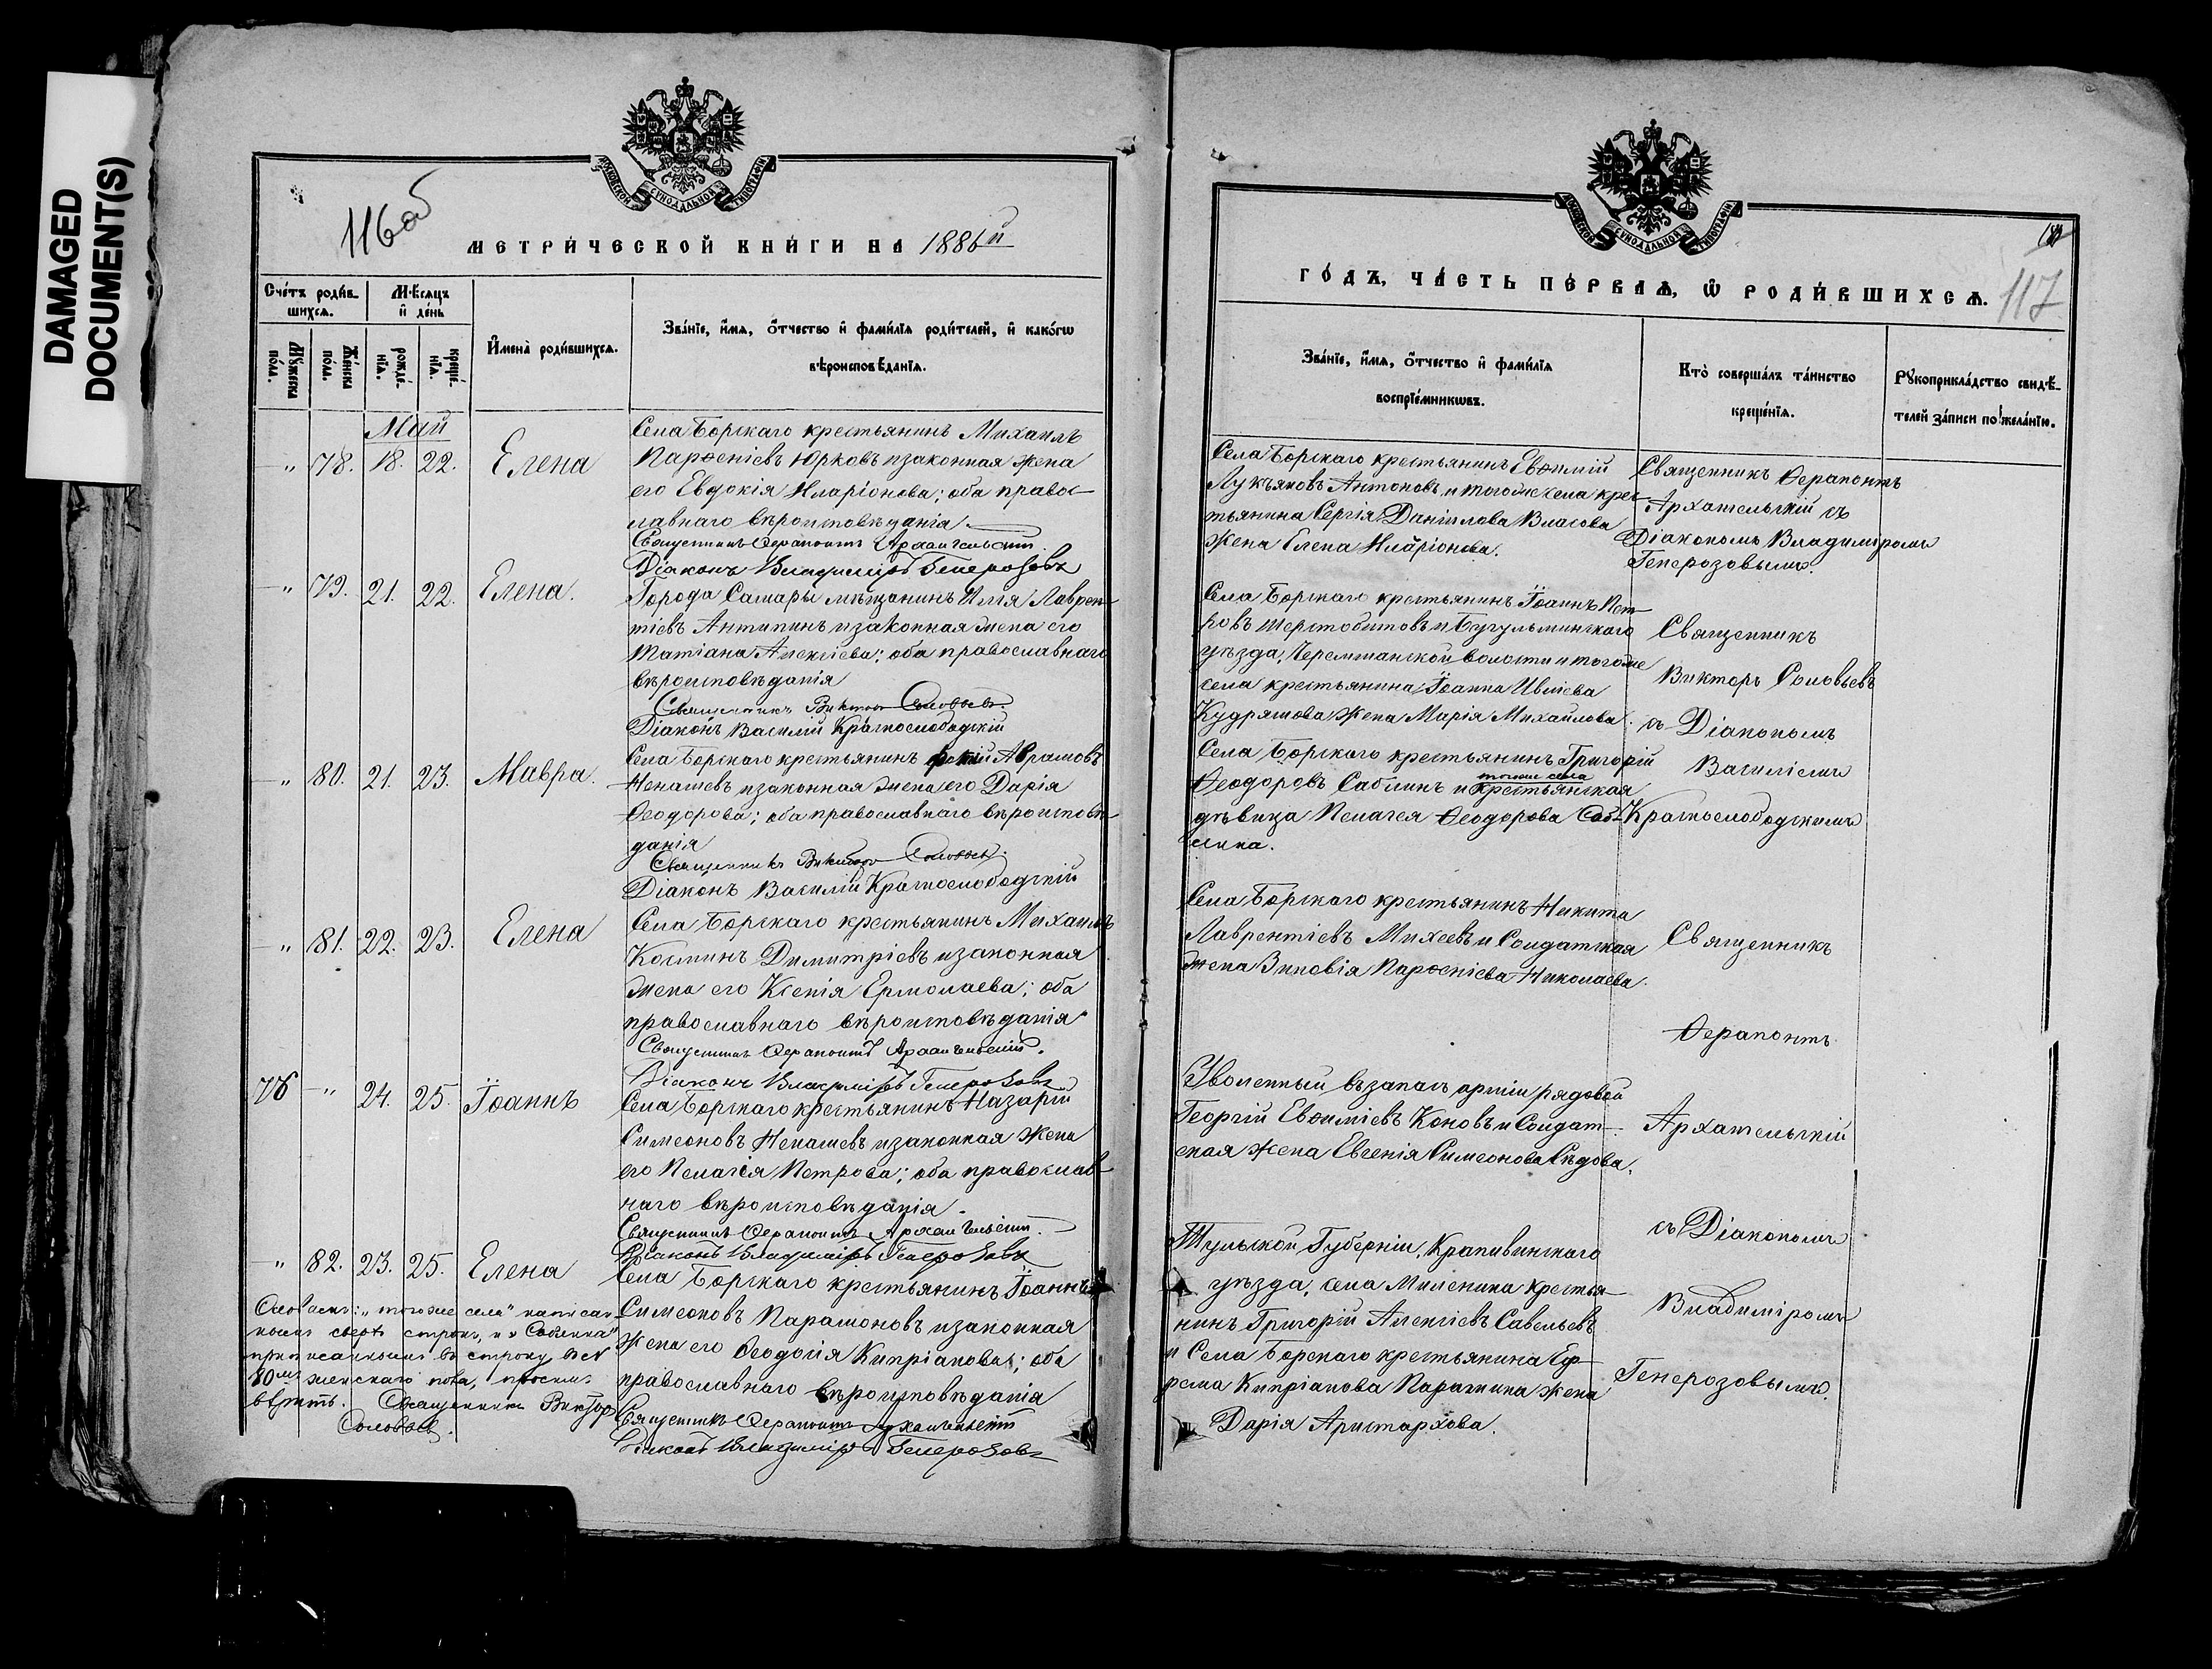 DAMAGED
DOCUMENT(S)
МОСКОВСКОЙ СУНОДАЛЬНОЙ ТИПОГРАФІИ
116об
МЕТРИ́ЧЕСКОЙ КНИ́ГИ НА 1886й
Сче́тъ роди́в-
шихсѧ.
Мѣ́сѧцъ
и де́нь
Мꙋ́жеска
по́ла.
Же́нска
по́ла.
рожде́-
нїѧ.
креще́-
нїѧ.
И҆мена̀ роди́вшихсѧ.
Зва́нїе, и҆́мѧ, ѻ҆́тчество и҆ фами́лїѧ роди́телей, и҆ како́гѡ
вѣроисповѣ́данїѧ.
Май
" 78. 18. 22. Елена
Села Борскаго крестьянинъ Михаилъ
Парѳеніевъ Юрковъ и законная жена
его Евдокія Иларіонова; оба правос-
лавнаго вѣроисповѣданія.
Священникъ Ѳерапонтъ Архангельскій
Діаконъ Владиміръ Генерозовъ
" 79. 21. 22. Елена.
Города Самары мѣщанинъ Илія Лаврен-
тіевъ Антипинъ и законная жена его
Татіана Алексіева; оба православнаго
вѣроисповѣданія
Священникъ Викторъ Соловьевъ.
Діаконъ Василій Краснослободскій
" 80. 21. 23. Мавра.
Села Борскаго крестьянинъ Аврамовъ
Ненашевъ и законная жена его Дарія
Ѳеодорова; оба православнаго вѣроисповѣ-
данія
Священникъ Викторъ Соловьевъ.
Діаконъ Василій Краснослободскій
" 81. 22. 23. Елена
Села Борскаго крестьянинъ Михаилъ
Косминъ Димитріевъ и законная
жена его Ксенія Ермолаева; оба
православнаго вѣроисповѣданія
Священникъ Ѳерапонтъ Архангельскій.
Діаконъ Владиміръ Генерозовъ
76 " 24. 25. Іоаннъ
Села Борскаго крестьянинъ Назарій
Симеоновъ Ненашевъ и законная жена
его Пелагія Петрова; оба православ-
наго вѣроисповѣданія.
Священникъ Ѳерапонтъ Архангельскій.
Діаконъ Владиміръ Генерозовъ
" 82. 23. 25. Елена
Села Борскаго крестьянинъ Іоаннъ
Симеоновъ Парамоновъ и законная
жена его Ѳеодосія Кипріанова; оба
православнаго вѣроисповѣданія
Священникъ Ѳерапонтъ Архангельскій
Діаконъ Владиміръ Генерозовъ
"того же села" написан-
нымъ сверхъ строкъ, и
приписаннымъ въ строку въ №
80мъ женскаго пола, просимъ
вѣрить. Священникъ Викторъ
Соловьевъ.
МОСКОВСКОЙ СУНОДАЛЬНОЙ ТИПОГРАФІИ
117
ГО́ДЪ, ЧА́СТЬ ПЕ́РВАѦ, Ѡ҆ РОДИ́ВШИХСѦ.
Зва́нїе, и҆́мѧ, ѻ҆́тчество и҆ фами́лїѧ
воспрїе́мникѡвъ.
Кто̀ соверша́лъ та́инство
креще́нїѧ.
Рꙋкоприкла́дство свидѣ́-
телей за́писи по жела́нїю.
Села Борскаго крестьянинъ Евѳимій
Лукьяновъ Антоновъ и того же села крес-
тьянина Сергія Даніилова Власова
жена Елена Иларіонова.
Священникъ Ѳерапонтъ
Архангельскій съ
Діакономъ Владиміромъ
Генерозовымъ.
Села Борскаго крестьянинъ Іоаннъ Пет-
ровъ Шерстобитовъ и Бугульминскаго
уѣзда, Черемшанской волости и того же
села крестьянина Іоанна Ивлiева
Кудряшова жена Марія Михаилова.
Священникъ
Викторъ Соловьевъ
съ Діакономъ
Василіемъ
Краснослободскимъ
Села Борскаго крестьянинъ Григорій
Ѳеодоровъ Саблинъ и того же села крестьянская
дѣвица Пелагея Ѳеодорова Саб-
лина.
Села Борскаго крестьянинъ Никита
Лаврентіевъ Михеевъ и Солдатская
жена Зиновія Парѳеніева Николаева.
Священникъ
Ѳерапонтъ
Архангельскій
съ Діакономъ
Владиміромъ
Генерозовымъ.
Уволенный въ запасъ арміи рядовой
Георгій Евѳиміевъ Коновъ и Солдат-
ская жена Евгенія Симеонова Сѣдова.
Тульской Губерніи, Крапивинскаго
уѣзда, села Миленина крестья-
нинъ Григорій Алексіевъ Савельевъ
и Села Борскаго крестьянина Еф-
рема Кипріанова Парамина жена
Дарія Аристархова.